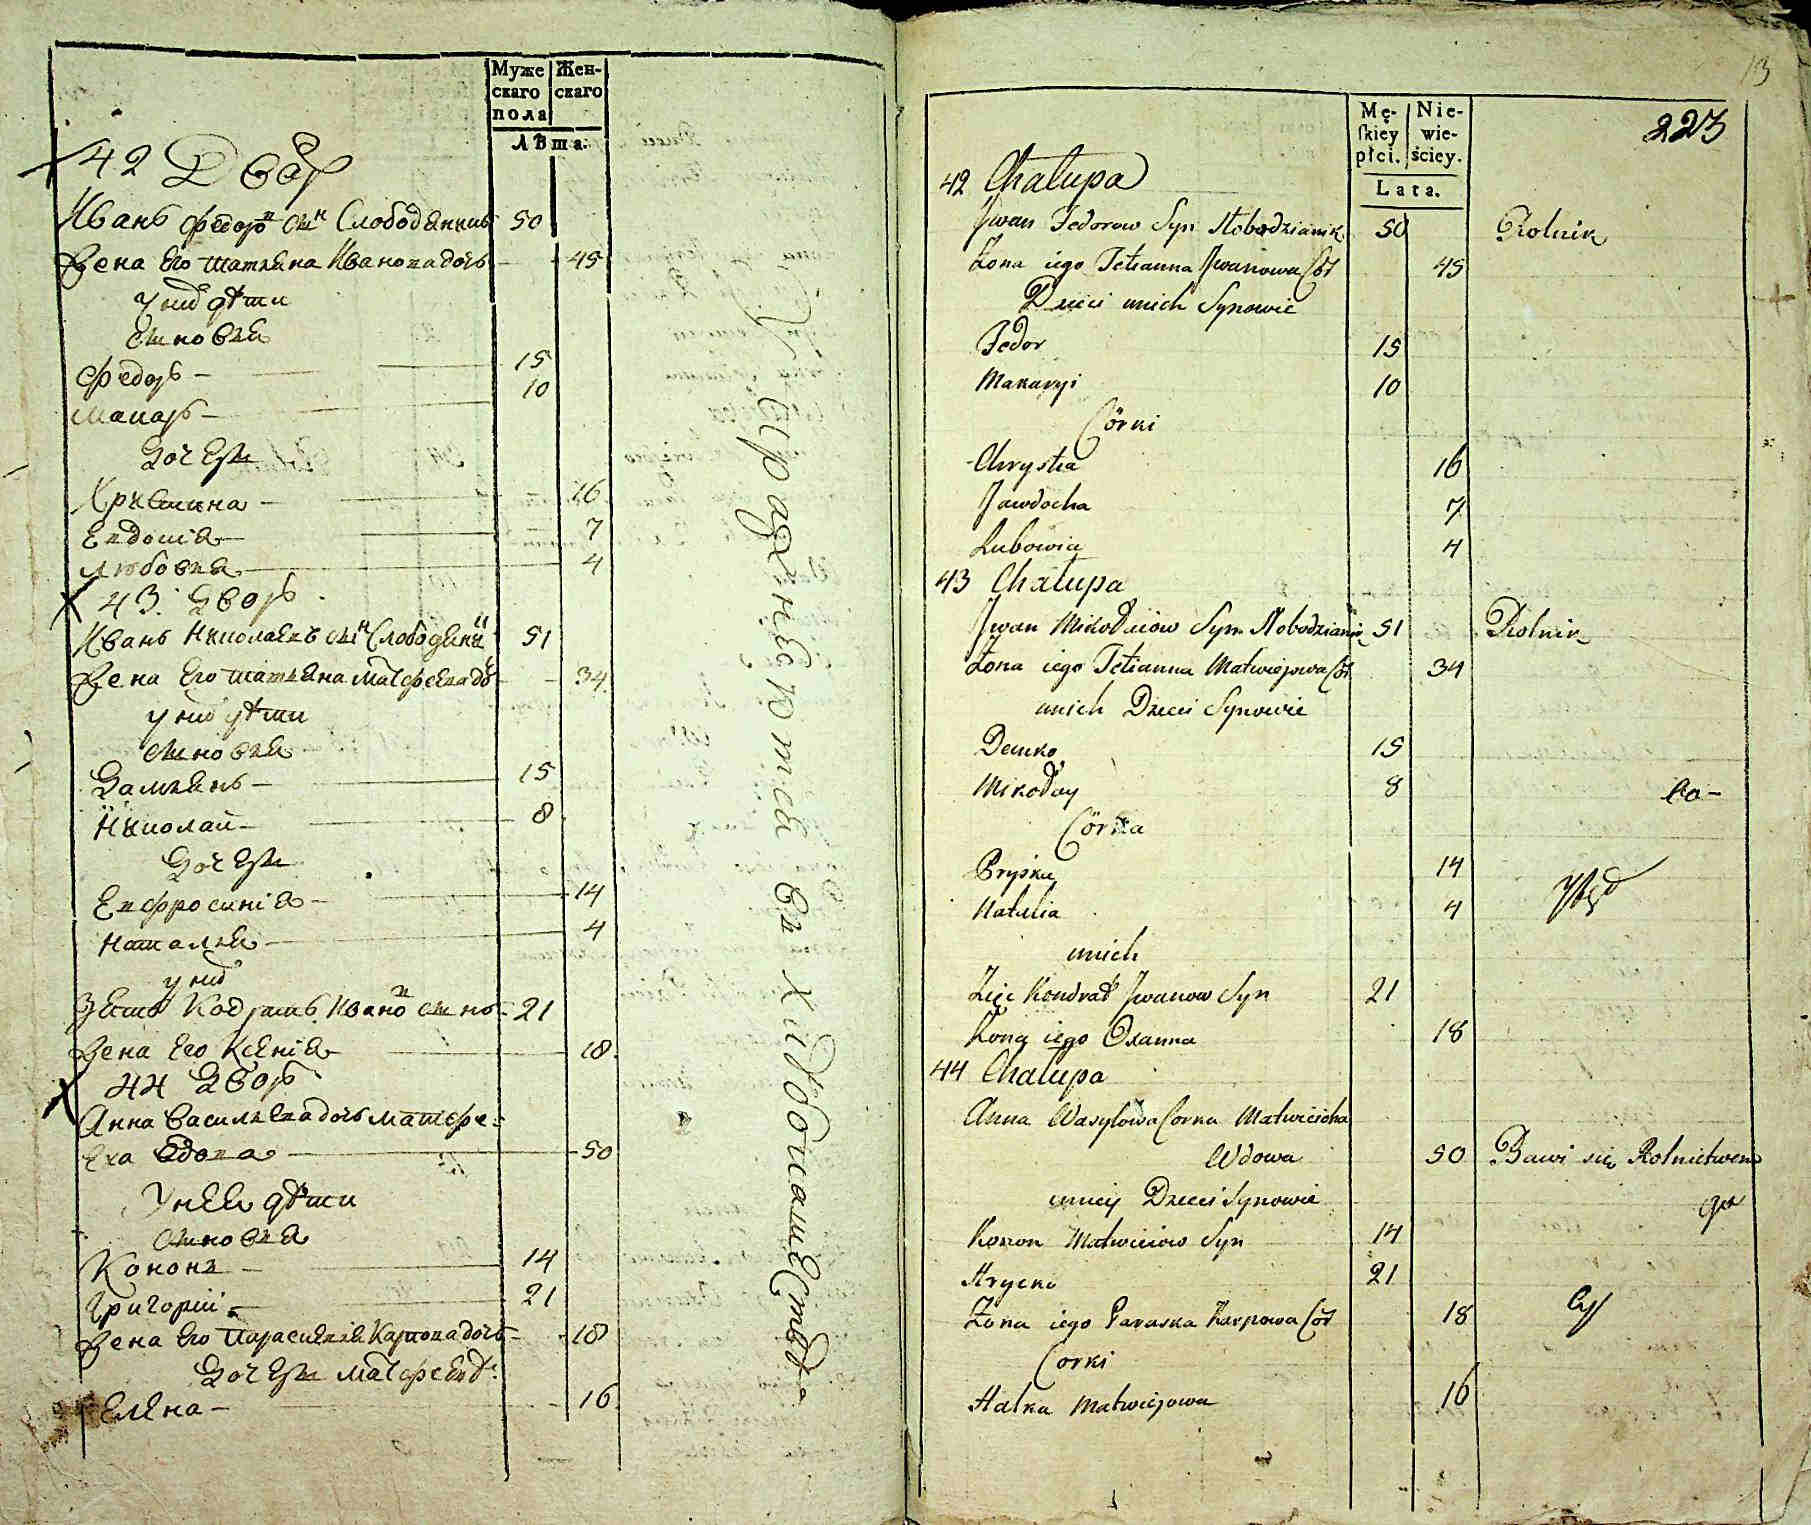 Муже
скаго
пола
Жен-
скаго
Лѣта.
42 Дворъ
Иванъ Федоровъ сынъ Слободяникъ 50
Жена Его Татьяна Иванова дочь 45
У нихъ дѣти
Сыновья
Федоръ 15
Макаръ 10
Дочери
Христина 16
Евдокія 7
Любовья 4
43. Дворъ
Иванъ Николаевъ сынъ Слободяникъ 51
Жена Его Татьяна Матфеева дочь 34
у нихъ дѣти
сыновья
Дамьянъ 15
Николай 8
Дочери
Евфросинія 14
Наталья 4
у нихъ
Зять Кодратъ Ивановъ сынъ 21
Жена Его Ксенія 18
44 Дворъ
Анна Васильева дочь Матфе-
ева вдова 50
У нея дѣти
Сыновья
Кононъ 14
Григорій 21
Жена Его Парасковья Карпова дочь 18
Дочери Матфеевы
Елена 16
13
Mę-
skiey
płci.
Nie-
wie-
ściey.
Lata.
223
42 Chałupa
Jwan Fedorow Syn Słobodzianik 50 Rolnik
Żona iego Tetianna Jwanowa Cór 45
Dzieci unich Synowie
Fedor 15
Makaryi 10
Córki
Chrystia 16
Jawdocha 7
Lubowia 4
43 Chałupa
Jwan Mikołaiow Syn Słobodzianik 51 Rolnik
Żona iego Tetianna Matwiejowa Cór 34
unich Dzieci Synowie
Demko 15
Mikołay 8
Córka
Pryska 14
Natalia 4
unich
Zięć Kondrat Jwanow Syn 21
Żona iego Oxanna 18
44 Chałupa
Anna Wasylowa Corka Matwieicha
Wdowa 50 Bawi się Rolnictwem
uniey Dzieci Synowie
Konon Matwieiow Syn 14
Hrycko 21
Żona iego Paraska Karpowa Cór 18
Corki
Halka Matwiejowa 16